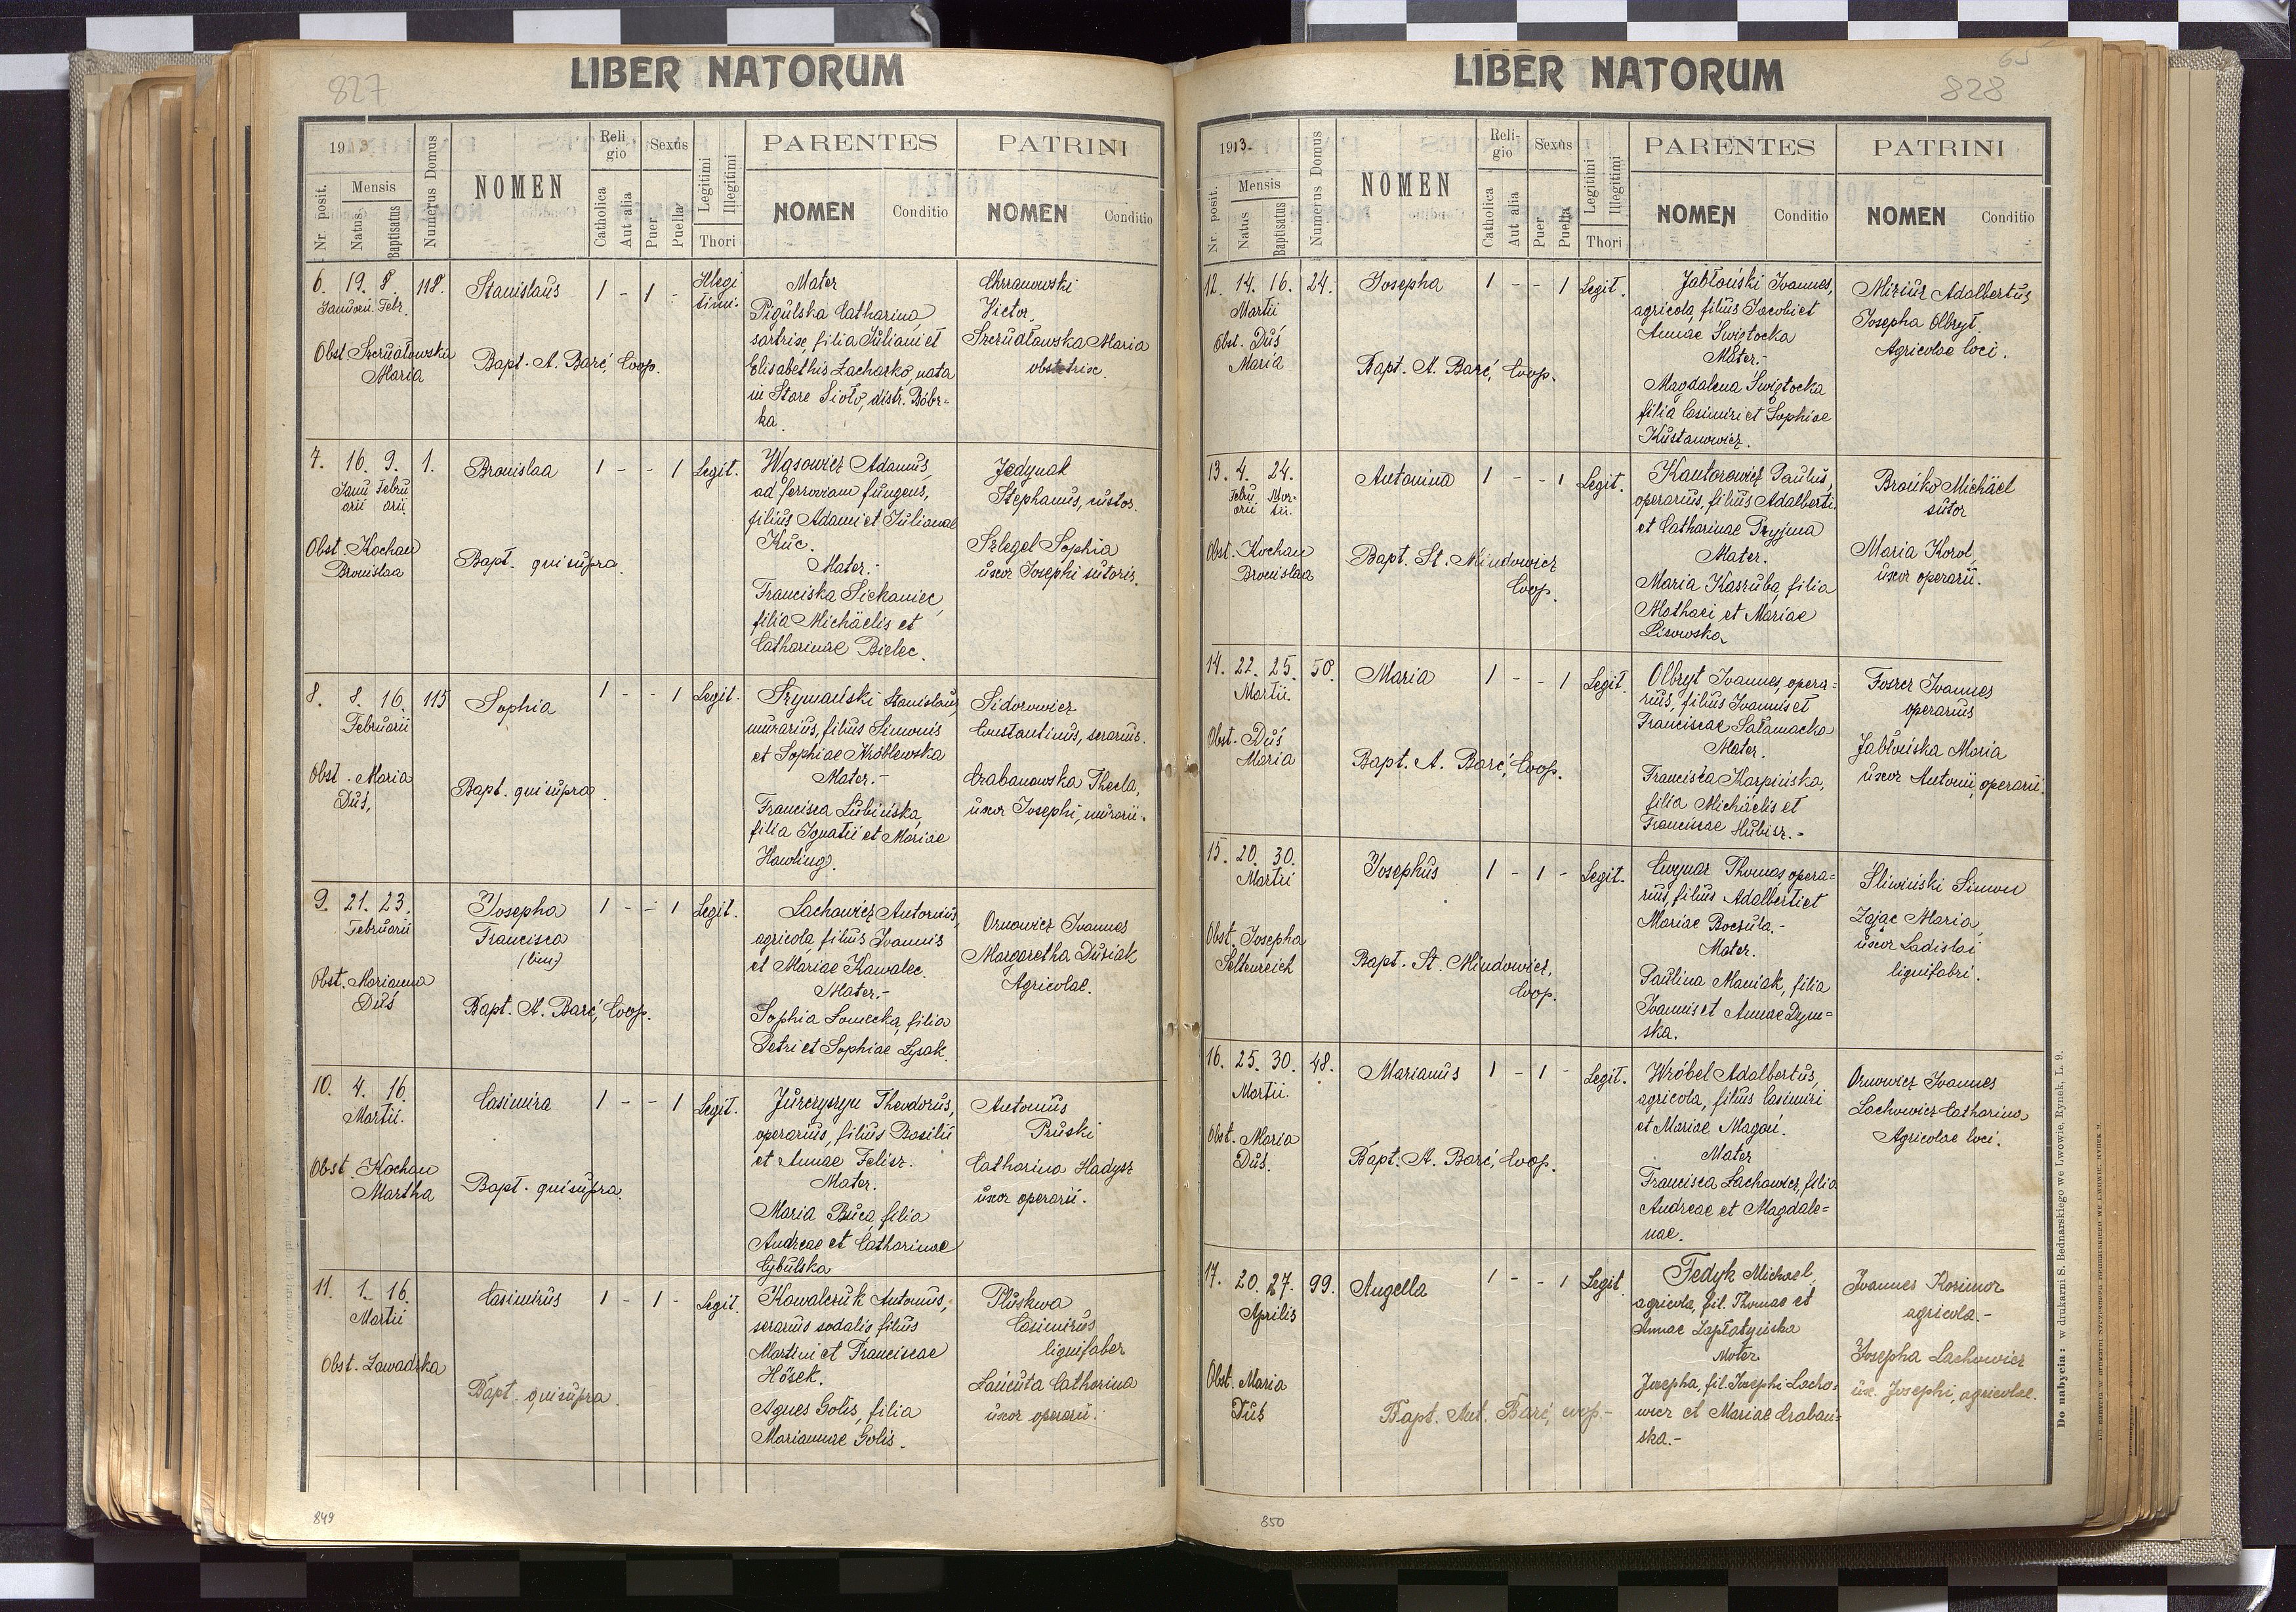 827
LIBER NATORUM
19
Nr. posit.
Mensis
Natus
Baptisatus
Numerus Domus
NOMEN
Religio
Catholica
Aut alia
Sexus
Puer
Puella
Legitimi
Illegitimi
Thori
PARENTES
NOMEN Conditio
PATRINI
NOMEN Conditio
6. 19. 8. 118. Stanislaus 1 - 1 - Illegi
Januarii. Febr. timi.
Obst. Szczudłowska
Maria
Bapt. A. Barć, Coop.
Mater
Pigulska Catharina
sartrix, filia Juliani et
Elisabethis Zacharko, nata
in Stare Sioło, distr. Bóbr-
ka.
Chrzanowski
Victor,
Szczudłowska Maria
obstetrix.
7. 16. 9. 1. Bronislaa 1 - - 1 Legit.
Janu Febru
arii arii.
Obst. Kochan
Bronislaa
Bapt. qui supra.
Wąsowicz Adamus,
ad ferroviam fungens,
filius Adami et Julianae
Kuc.
Mater.-
Franciska Siekaniec,
filia Michäelis et
Catharinae Bielec.
Jedynak
Stephanus, custos.
Szlegel Sophia
uxor Josephi sutoris.
8. 8. 16. 115 Sophia 1 - - 1 Legit.
Februarii
Obst. Maria
Duś,
Bapt. qui supra.
Szymański Stanislaus,
murarius, filius Simonis
et Sophiae Wróblewska
Mater.-
Francisca Lubińska,
filia Ignatii et Mariae
Hawling.
Sidorowicz
Constantinus, serarius.
Czabanowska Thecla,
uxor Josephi, murarii.
9. 21. 23. Josepha 1 - - 1 Legit.
Februarii Francisca
(bin.)
Obst. Marianna
Duś
Bapt. A. Barć, Coop.
Lachowicz Antonius,
agricola filius Joannis
et Mariae Kawalec.
Mater.-
Sophia Łomecka, filia
Petri et Sophiae Łysak.
Ornowicz Joannes
Margaretha Dusiak
Agricolae.
10. 4. 16. Casimira 1 - - 1 Legit.
Martii.
Obst. Kochan
Martha
Bapt. qui supra.
Jurczyszyn Theodorus,
operarius, filius Basilii
et Annae Felisz.
Mater.
Maria Buca, filia
Andreae et Catharinae
Cybulska
Antonius
Pruski
Catharina Hadysz
uxor operarii.
11. 1. 16. Casimirus 1 - 1 - Legit.
Martii
Obst. Zawadzka
Bapt. qui supra.
Kowalczuk Antonius,
serarius sodalis filius
Martini et Franciscae
Hősek.
Agnes Golis, filia
Mariannae Golis.
Pluskwa
Casimirus
lignifaber
Łańcuta Catharina
uxor operarii.
849
65
828
LIBER NATORUM
1913.
Nr. posit.
Mensis
Natus
Baptisatus
Numerus Domus
NOMEN
Religio
Catholica
Aut alia
Sexus
Puer
Puella
Legitimi
Illegitimi
Thori
PARENTES
NOMEN Conditio
PATRINI
NOMEN Conditio
12. 14. 16. 24. Josepha 1 - - 1 Legit.
Martii
Obst. Duś
Maria
Bapt. A. Barć, Coop.
Jabłoński Joannes,
agricola, filius Jacobi et
Annae Świętocka
Mater.-
Magdalena Świętocka
filia Casimiri et Sophiae
Kustanowicz.
Miziur Adalbertus,
Josepha Olbryt.
Agricolae loci.
13. 4. 24. Antonina 1 - - 1 Legit.
Febru Mar-
arii tii.
Obst. Kochan
Bronislaa
Bapt. St. Mindowicz
Coop.
Kantorowicz Paulus,
operarius, filius Adalberti
et Catharinae Pryjma
Mater.
Maria Kaszuba, filia
Mathaei et Mariae
Lisowska
Brońko Michäel
sutor
Maria Korol,
uxor operarii.
14. 22. 25. 50. Maria 1 - - 1 Legit.
Martii.
Obst. Duś
Maria
Bapt. A. Barć, Coop.
Olbryt Joannes, opera-
rius, filius Joannis et
Franciscae Sałamacka
Mater.
Francisca Karpińska,
filia Michäelis et
Franciscae Hubisz.-
Foszcz Joannes
operarius
Jabłońska Maria
uxor Antonii, operarii.
15. 20. 30. Josephus 1 - 1 - Legit.
Martii
Obst. Josepha
Seltenreich
Bapt. St. Mindowicz,
Coop.
Cwynar Thomas opera-
rius, filius Adalberti et
Mariae Boczula.-
Mater.
Paulina Maniak, filia
Joannis et Annae Dym-
ska.
Śliwiński Simon
Zając Maria,
uxor Ladislai
lignifabri.
16. 25. 30. 48. Marianus 1 - 1 - Legit.
Martii.
Obst. Maria
Duś.
Bapt. A. Barć, Coop.
Wróbel Adalbertus,
agricola, filius Casimiri
et Mariae Magoń.
Mater
Francisca Lachowicz, filia
Andreae et Magdale-
nae.
Ornowicz Joannes
Lachowicz Catharina
Agricolae loci.
17. 20. 27. 99. Angella 1 - - 1 Legit
Aprilis
Obst. Maria
Duś
Bapt. Ant. Barć, coop.-
Fedyk Michael,
agricola, fil. Thomas et
Annae Zapłatyńska
Mater
Josepha, fil. Josephi Lacho-
wicz et Mariae Czabań-
ska.-
Joannes Kosimor
agricola.-
Josepha Lachowicz
ux. Josephi, agricolae.
Do nabycia: w drukarni S. Bednarskiego we Lwowie, Rynek, L. 9.
850